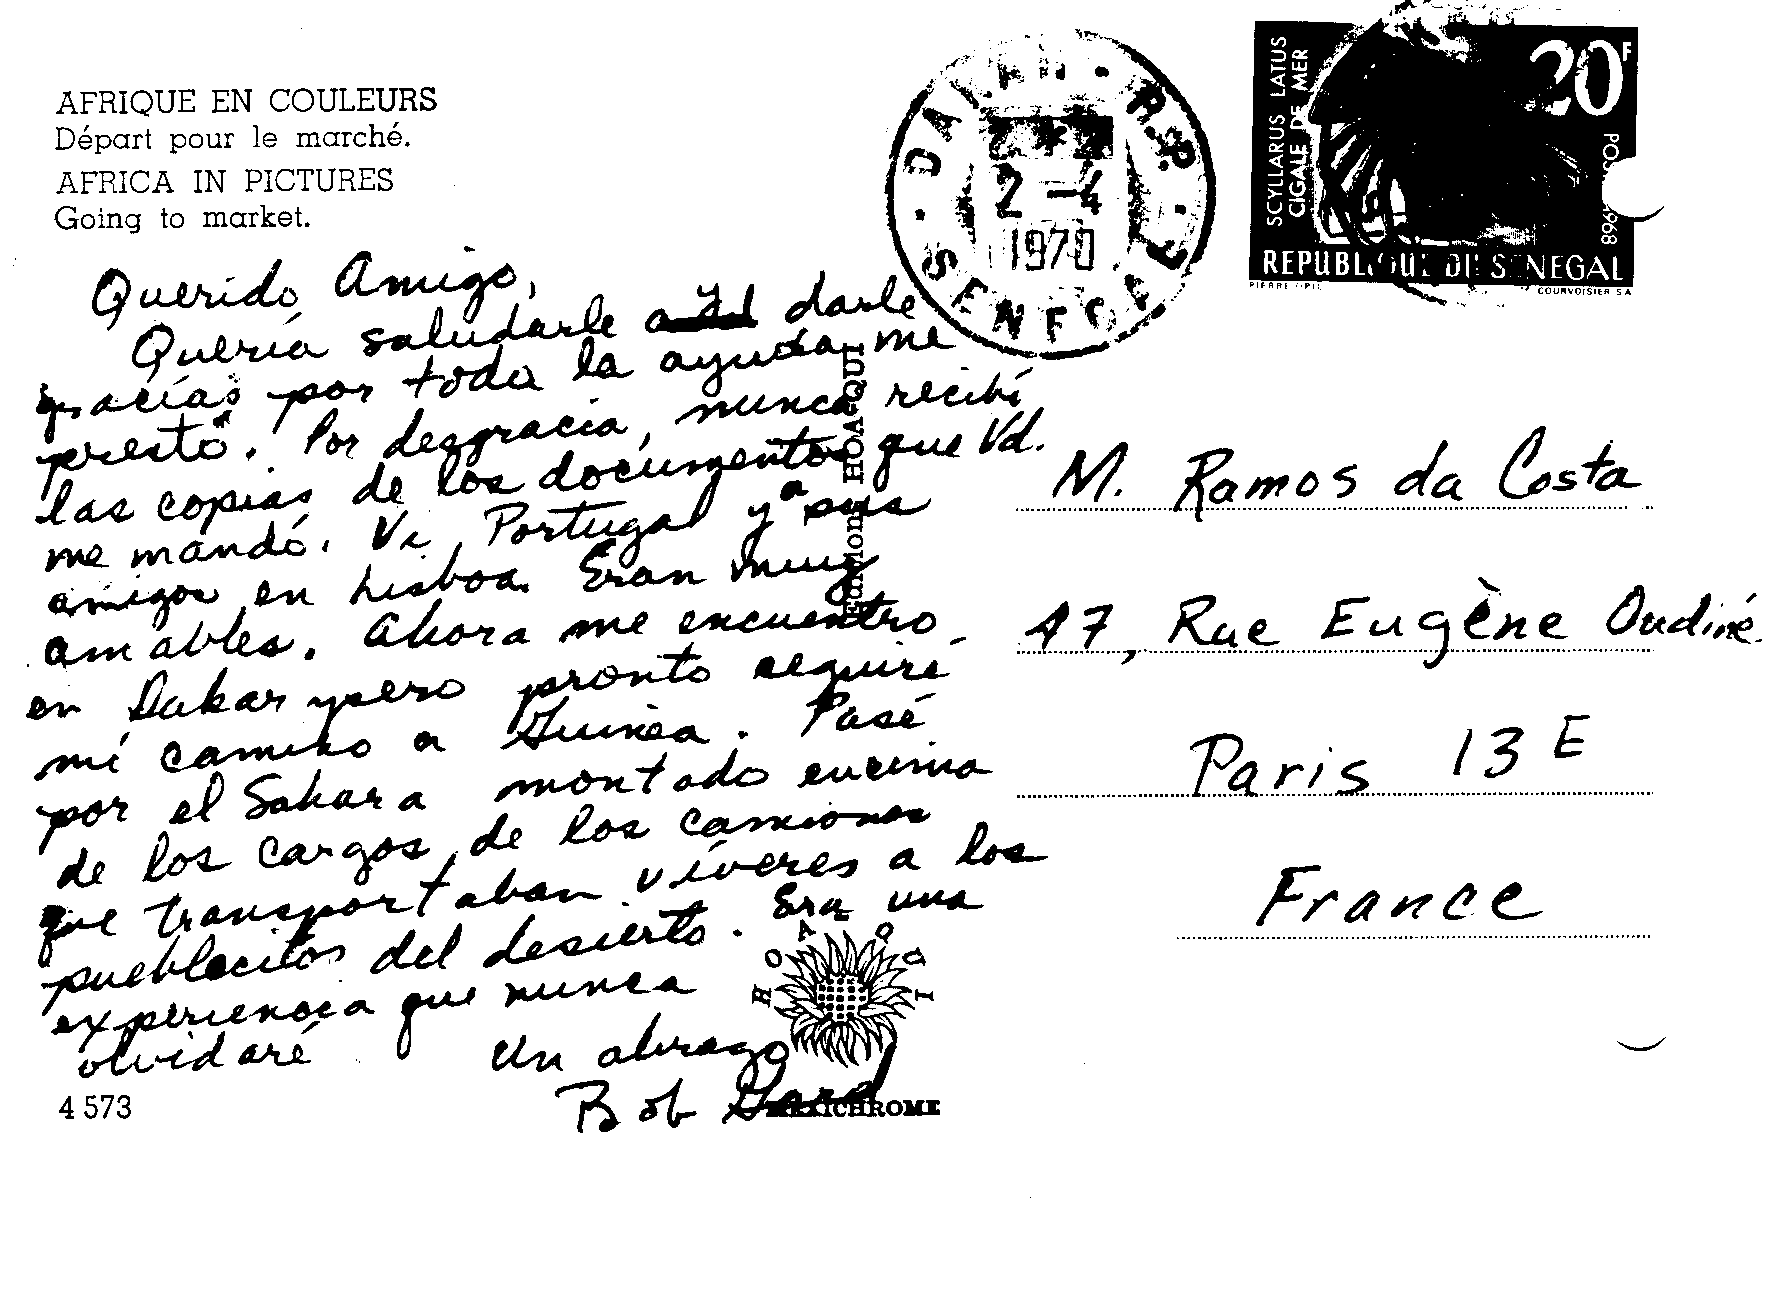 AFRIQUE EN COULEURS
Départ pour le marché.
AFRICA IN PICTURES
Going to market.
Querido Amigo,
Quería saludarle y darle
gracias por toda la ayuda me
prestó. Por desgracia, nunca recibí
las copias de los documentos que Vd.
me mandó. Vi Portugal y a sus
amigos en Lisboa. Eran muy
amables. Ahora me encuentro
en Dakar pero pronto seguiré
mi camino a Guinea. Pasé
por el Sahara montado encima
de los cargos de los camiones
que transportaban víveres a los
pueblecitos del desierto. Era una
experiencia que nunca
olvidaré Un abrazo
Bob
4 573
Editions HOA-QUI
HOA QUI
MEXICHROME
DAKAR R.P.
2 -4
1970
SENEGAL
20F
SCYLLARUS LATUS
CIGALE DE MER
1968
REPUBLIQUE DU SENEGAL
COURVOISIER S.A
M. Ramos da Costa
47, Rue Eugène Oudiné
Paris 13E
France